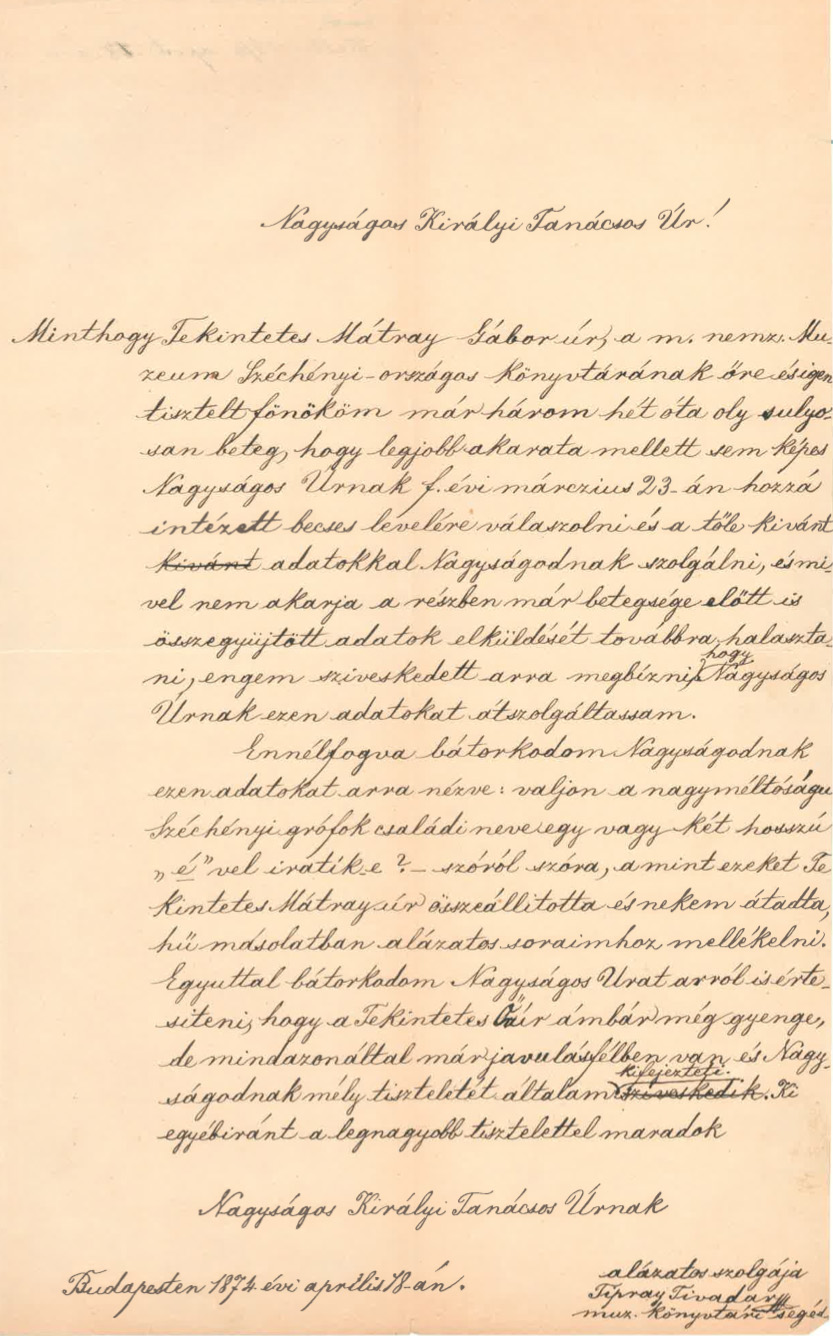 Nagyságos Királyi Tanácsos Úr!
Minthogy Tekintetes Mátray Gábor úr, a m. nemz. Mu-
zeum Széchényi-országos könyvtárának őre és igen
tisztelt főnököm már három hét óta oly sulyo-
san beteg, hogy legjobb akarata mellett sem képes
Nagyságos Úrnak f. évi márczius 23-án hozzá
intézett becses levelére válaszolni és a tőle kivánt
kivánt adatokkal Nagyságodnak szolgálni, és mi-
vel nem akarja a részben már betegsége előtt is
összegyüjtött adatok elküldését továbbra halaszta-
ni, engem sziveskedett arra megbízni, hogy Nagyságos
Úrnak ezen adatokat átszolgáltassam.
Ennélfogva bátorkodom Nagyságodnak
ezen adatokat arra nézve: valjon a nagyméltóságu
Széchényi grófok családi neve egy vagy két hosszú
„é"vel iratik-e? – szóról szóra, a mint ezeket Te
kintetes Mátray úr összeállitotta és nekem átadta,
hű másolatban alázatos soraimhoz mellékelni.
Egyuttal bátorkodom Nagyságos Urat arról is érte-
siteni, hogy a Tekintetes Őr úr ámbár még gyenge,
de mindazonáltal már javulásfélben van és Nagy-
ságodnak mély tiszteletét általam kifejezteti. sziveskedik. Ki
egyébiránt a legnagyobb tisztelettel maradok
Nagyságos Királyi Tanácsos Úrnak
alázatos szolgája
Budapesten 1874 évi aprilis 18-án.
Tipray Tivadar
muz. könyvtári segéd.